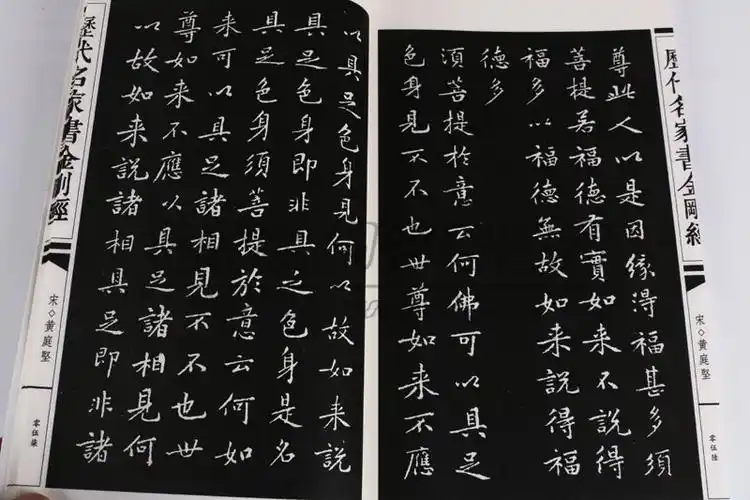 歷代名家書金剛經
宋◇黃庭堅
零伍陸
尊此人以是因緣得福甚多須
菩提若福德有實如来不說得
福多以福德無故如来說得福
德多
須菩提於意云何佛可以具足
色身見不不也世尊如来不應
以具足色身見何以故如来說
具足色身即非具足色身是名
具足色身須菩提於意云何如
来可以具足諸相見不不也世
尊如来不應以具足諸相見何
以故如来說諸相具足即非諸
歷代名家書金剛經
宋◇黃庭堅
零伍柒